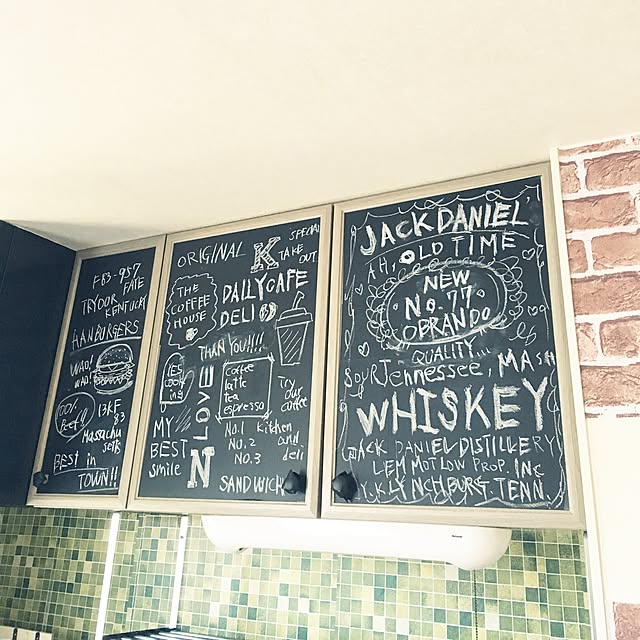 FB3-957
FATE
TRYOUR
KENTUCKY
HANBURGERS
WAO!
WAO!
100%
Beef!!
13KF
83
Massachu
setts
BEST in
TOWN!!
ORIGINAL K
SPECIAL
TAKE
OUT
THE
COFFEE
HOUSE
DAILY CAFE
DELI
THANK YOU!!!!
YES
COOK
ing
LOVE
coffee
latte
tea
espresso
Try
our
coffee
MY
BEST
smile
N
No.1 kitchen
No.2 and
No.3 deli
SANDWICH
JACK DANIEL'
AH, OLD TIME
NEW
No. 77
OBRANDO
QUALITY...
SOUR Jennessee, MASH
WHISKEY
JACK DANIEL DISTILLERY
LEM MOTLOW PROP. INC
LYNCHBURG TENN.